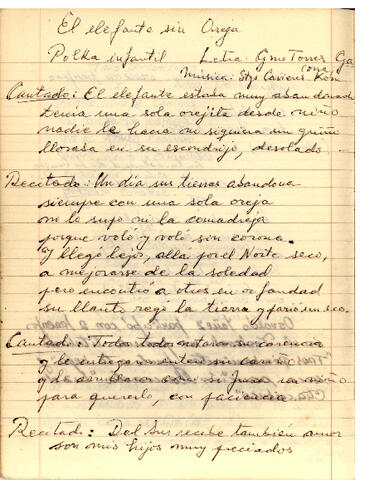 El elefante sin Oreja
Polka infantil Letra: Gmo Torres Ga
Música: Stgo
Cantado: El elefante estaba muy abandonado
tenía una sola orejita desde niño
nadie le hacía ni siquiera un guiño
lloraba en su escondrijo, desolado.
Recitado: Un día sus tierras abandona
siempre con una sola oreja
no lo supo ni la comadreja
porque voló y voló sin corona.
Y llegó lejos, allá por el Norte seco,
a mejorarse de la soledad
pero encontró a otros en orfandad
su llanto regó la tierra y parió un eco.
Cantado: Todos, todos notaron su carencia
y le entregaron entero su cariño
y le como si fuera un niño
para quererlo, con paciencia
Recitado: Del Sur recibe también amor
son mis hijos muy preciados